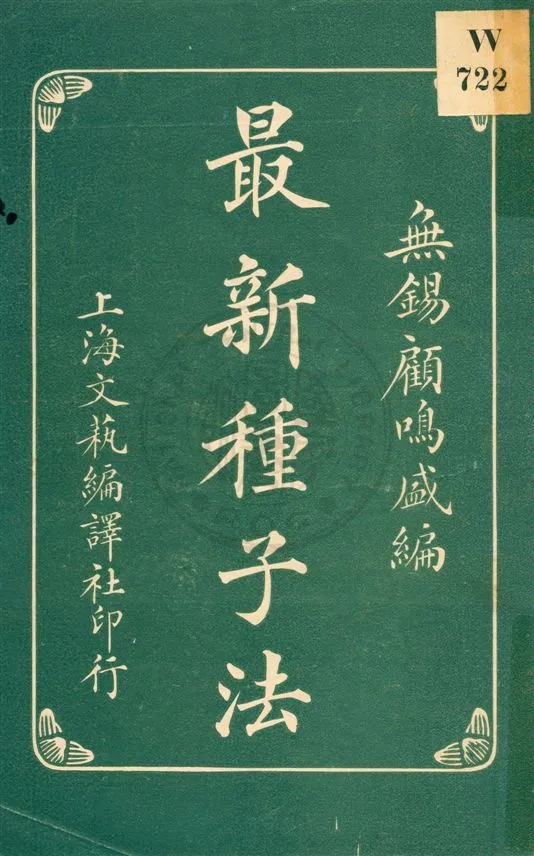 W
722
無錫顧鳴盛編
最新種子法
上海文蓺編譯社印行